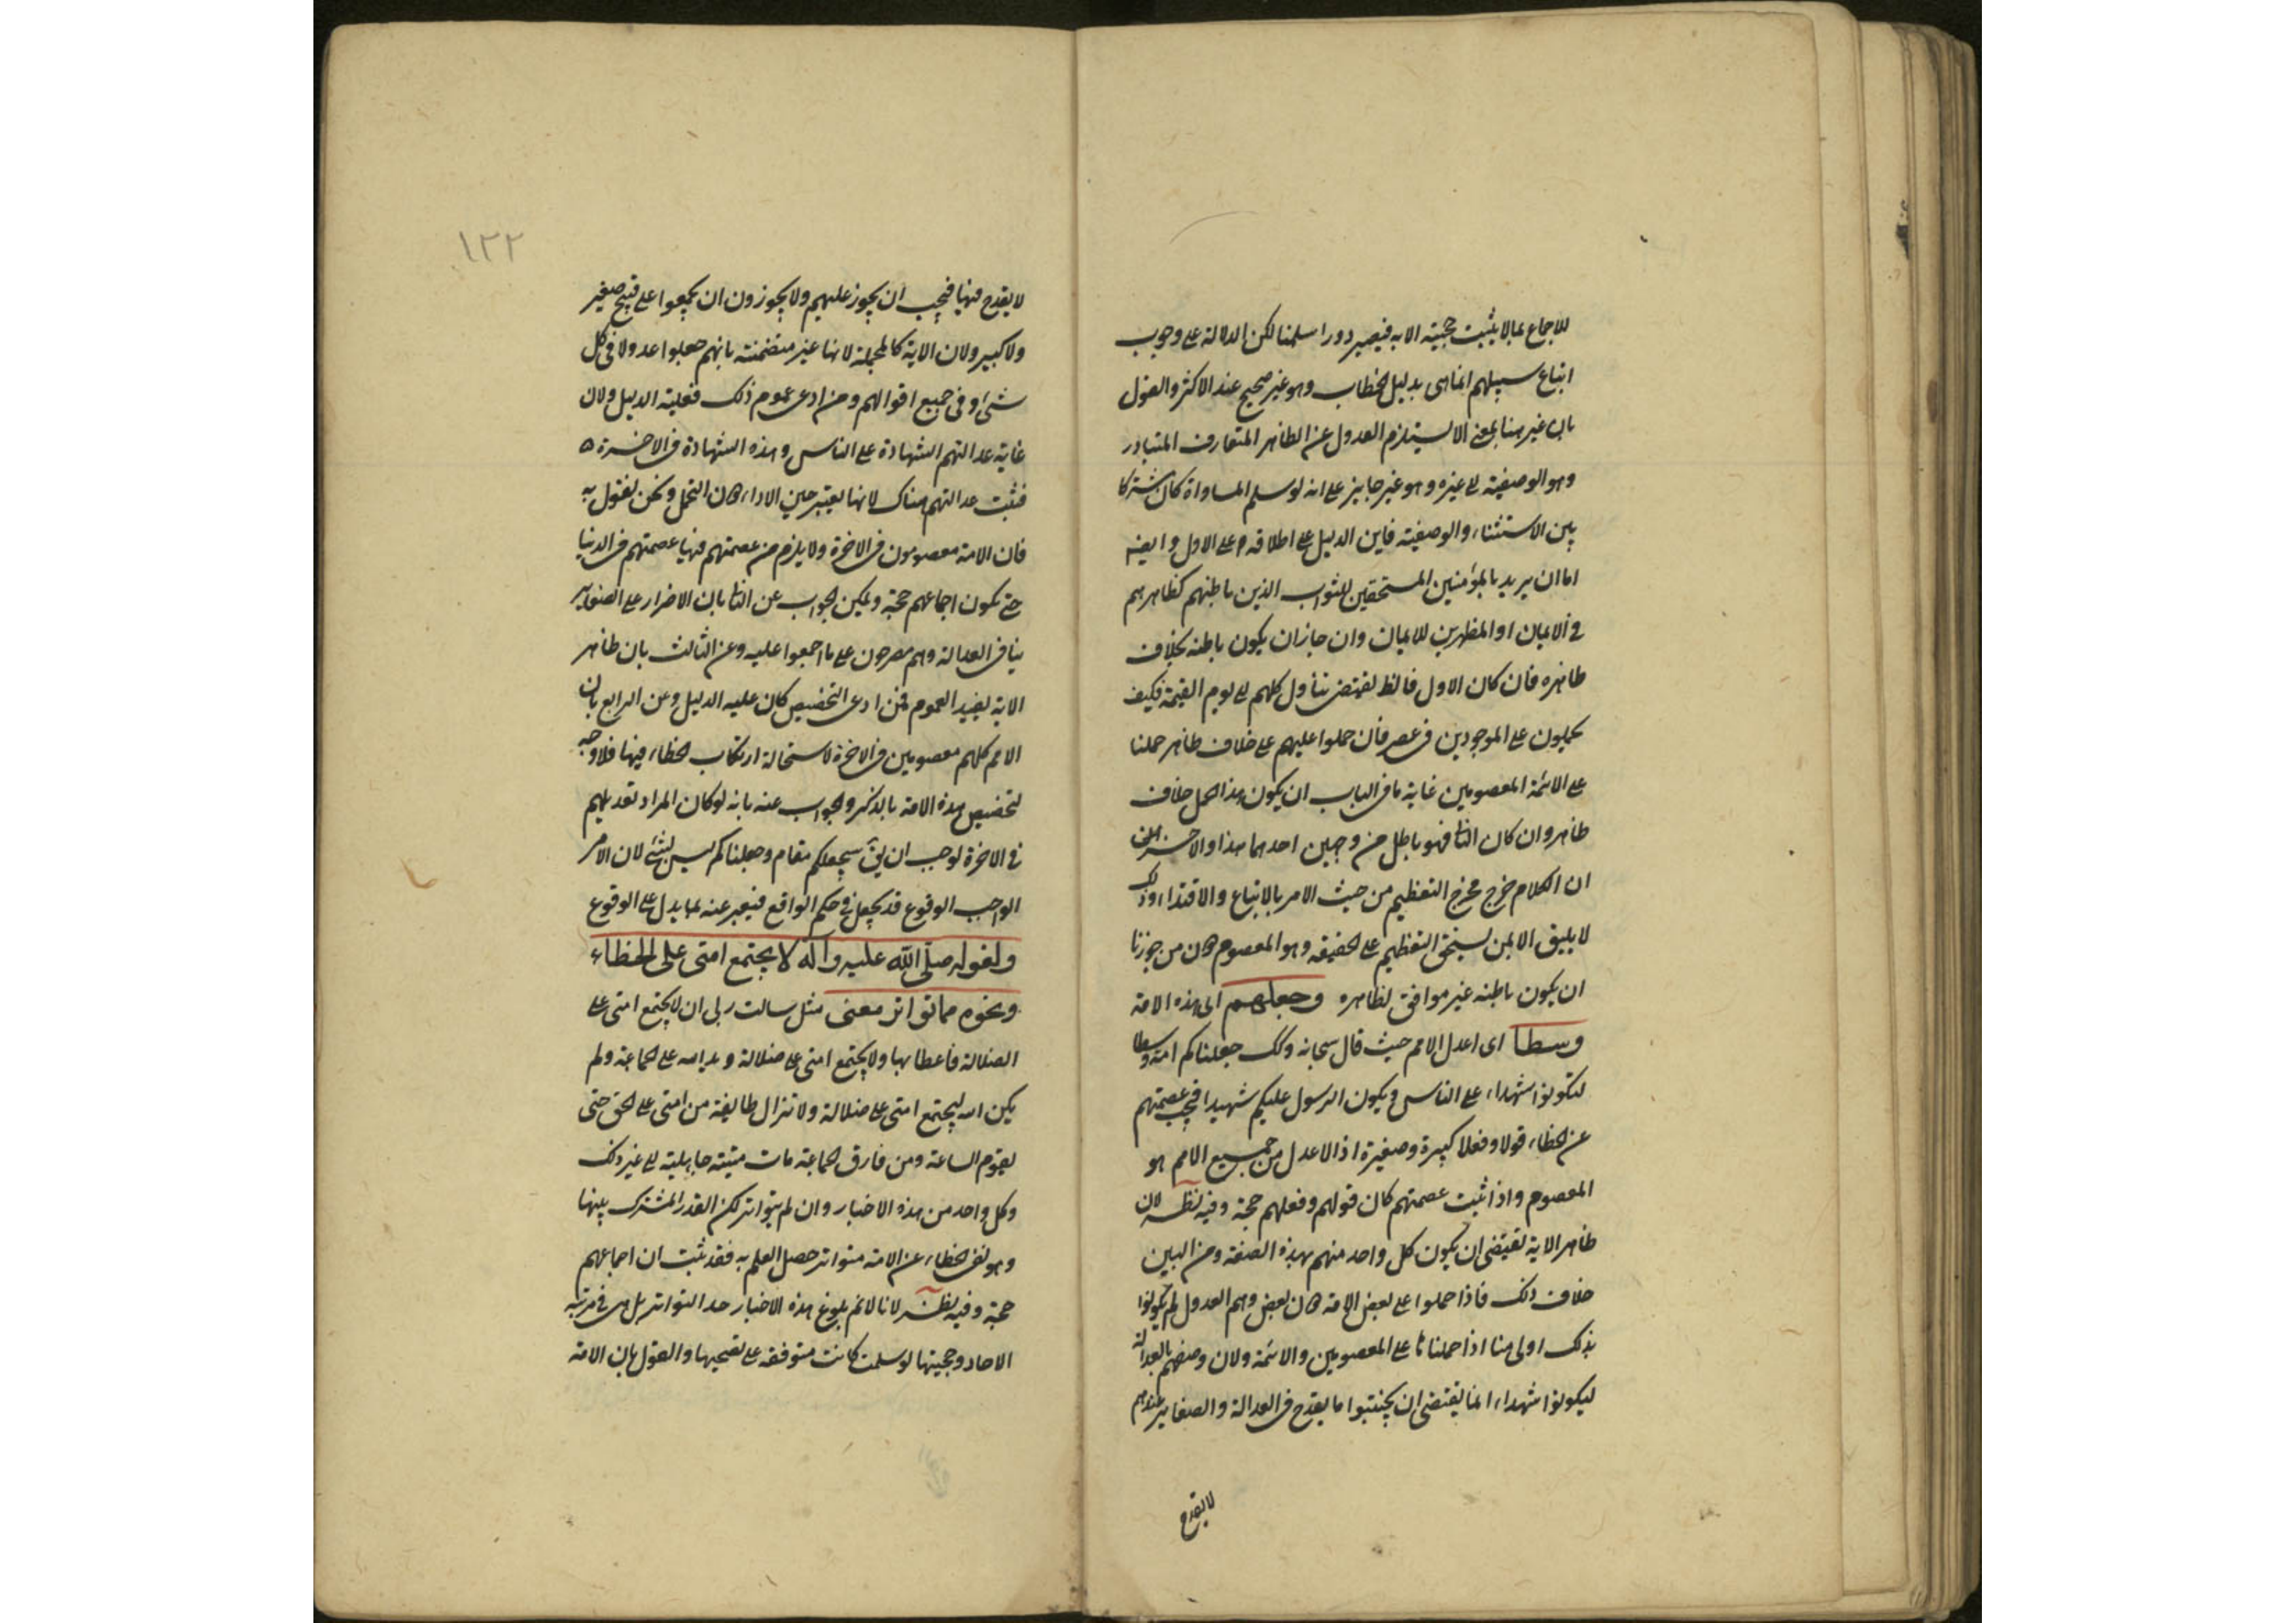 للاجماع بمالا يثبت حجيته الا به فيصير دورا سلمنا لكن الدلالة على وجوب
اتباع سبيلهم انما هى بدليل الخطاب وهو غير صحيح عند الاكثر والقول
بان غير هنا بمعنى الا يستلزم العدول عن الظاهر المتعارف المتبادر
وهو الوصفية الى غيره وهو غير جايز على انه لو سلم المساواة كان مشتركا
بين الاستثناء والوصفية فاين الدليل على اطلاقه على الاول وايضا
اما ان يريد بالمؤمنين المستحقين للثواب الذين باطنهم كظاهرهم
فى الايمان او المظهرين للايمان وان جاز ان يكون باطنه بخلاف
ظاهره فان كان الاول فالظ يقتضى تناول كلهم الى يوم القيمة فكيف
يحملون على الموجودين فى عصر فان حملوا عليهم على خلاف ظاهر حملنا
على الائمة المعصومين غاية ما فى الباب ان يكون هذا الحمل خلاف
ظاهر وان كان الثا فهو باطل من وجهين احدهما هذا والاخر
ان الكلام خرج مخرج التعظيم من حيث الامر بالاتباع والاقتداء وذلك
لا يليق الا بمن يستحق التعظيم على الحقيقه وهو المعصوم دون من جوزنا
ان يكون باطنه غير موافق لظاهره وجعلهم اى هذه الامة
وسطا اى اعدل الامم حيث قال سبحانه وكك جعلناكم امة وسطا
لتكونوا شهداء على الناس ويكون الرسول عليكم شهيدا فيجب عصمتهم
عن الخطاء قولا وفعلا كبيرة وصغيرة اذ الاعدل من جميع الامم هو
المعصوم واذا ثبت عصمتهم كان قولهم وفعلهم حجة وفيه نظر لان
ظاهر الاية يقتضى ان يكون كل واحد منهم بهذه الصفة ومن البين
خلاف ذلك فاذا حملوا على بعض الامة دون بعض وهم العدول لم يكونوا
بذلك اولى منا اذا حملنا على المعصومين والائمة ولان وصفهم بالعدالة
ليكونوا شهداء انما يقتضى ان يجتنبوا ما يقدح فى العدالة والصغاير عندهم
لا يقدح
١٢٢
لا يقدح فيها فيجب ان يجوز عليهم ولا يجوزون ان يجمعوا على قبيح صغير
ولا كبير ولان الاية كالمجملة لانها غير متضمنة بانهم جعلوا عدولا فى كل
شئ او فى جميع اقوالهم ومن ادعى عموم ذلك فعليه الدليل ولان
غاية عدالتهم الشهادة على الناس وهذه الشهادة فى الاخرة
فثبت عدالتهم هناك لانها يعتبر حين الاداء دون التحمل ونحن نقول به
فان الامة معصومون فى الاخرة ولا يلزم من عصمتهم فيها عصمتهم فى الدنيا
حتى يكون اجماعهم حجة ويمكن الجواب عن الثا بان الاضرار على الصغاير
ينافى العدالة وهم مصرحون على ما اجمعوا عليه وعن الثالث بان ظاهر
الاية يفيد العموم فمن ادعى التخصيص كان عليه الدليل وعن الرابع بان
الامم كلهم معصومين فى الاخرة لاستحالة ارتكاب الخطاء فيها فلا وجه
لتخصيص هذه الامة بالذكر والجواب عنه بانه لو كان المراد تعديلهم
فى الاخرة لوجب ان يق سيجعلكم مقام وجعلناكم ليس بشئ لان الامر
الواجب الوقوع قد يجعل فى حكم الواقع فيعبر عنه بما يدل على الوقوع
ولقوله صلى الله عليه وآله لا يجتمع امتى على الخطاء
ونحوه مما تواتر معنى مثل سالت ربى ان لا يجتمع امتى على
الضلالة فاعطانيها ولا يجتمع امتى على ضلالة ويد الله على الجماعة ولم
يكن الله ليجتمع امتى على ضلالة ولا تزال طايفة من امتى على الحق حتى
يقوم الساعة ومن فارق الجماعة مات ميتة جاهلية الى غير ذلك
وكل واحد من هذه الاخبار وان لم يتواتر لكن القدر المشترك بينها
وهو نفى الخطاء عن الامة متواتر حصل العلم به فقد ثبت ان اجماعهم
حجة وفيه نظر لانا لا نم بلوغ هذه الاخبار حد التواتر بل هى فى مرتبة
الاحاد وحجيتها لو سلمت كانت متوقفه على تصحيها والقول بان الامة